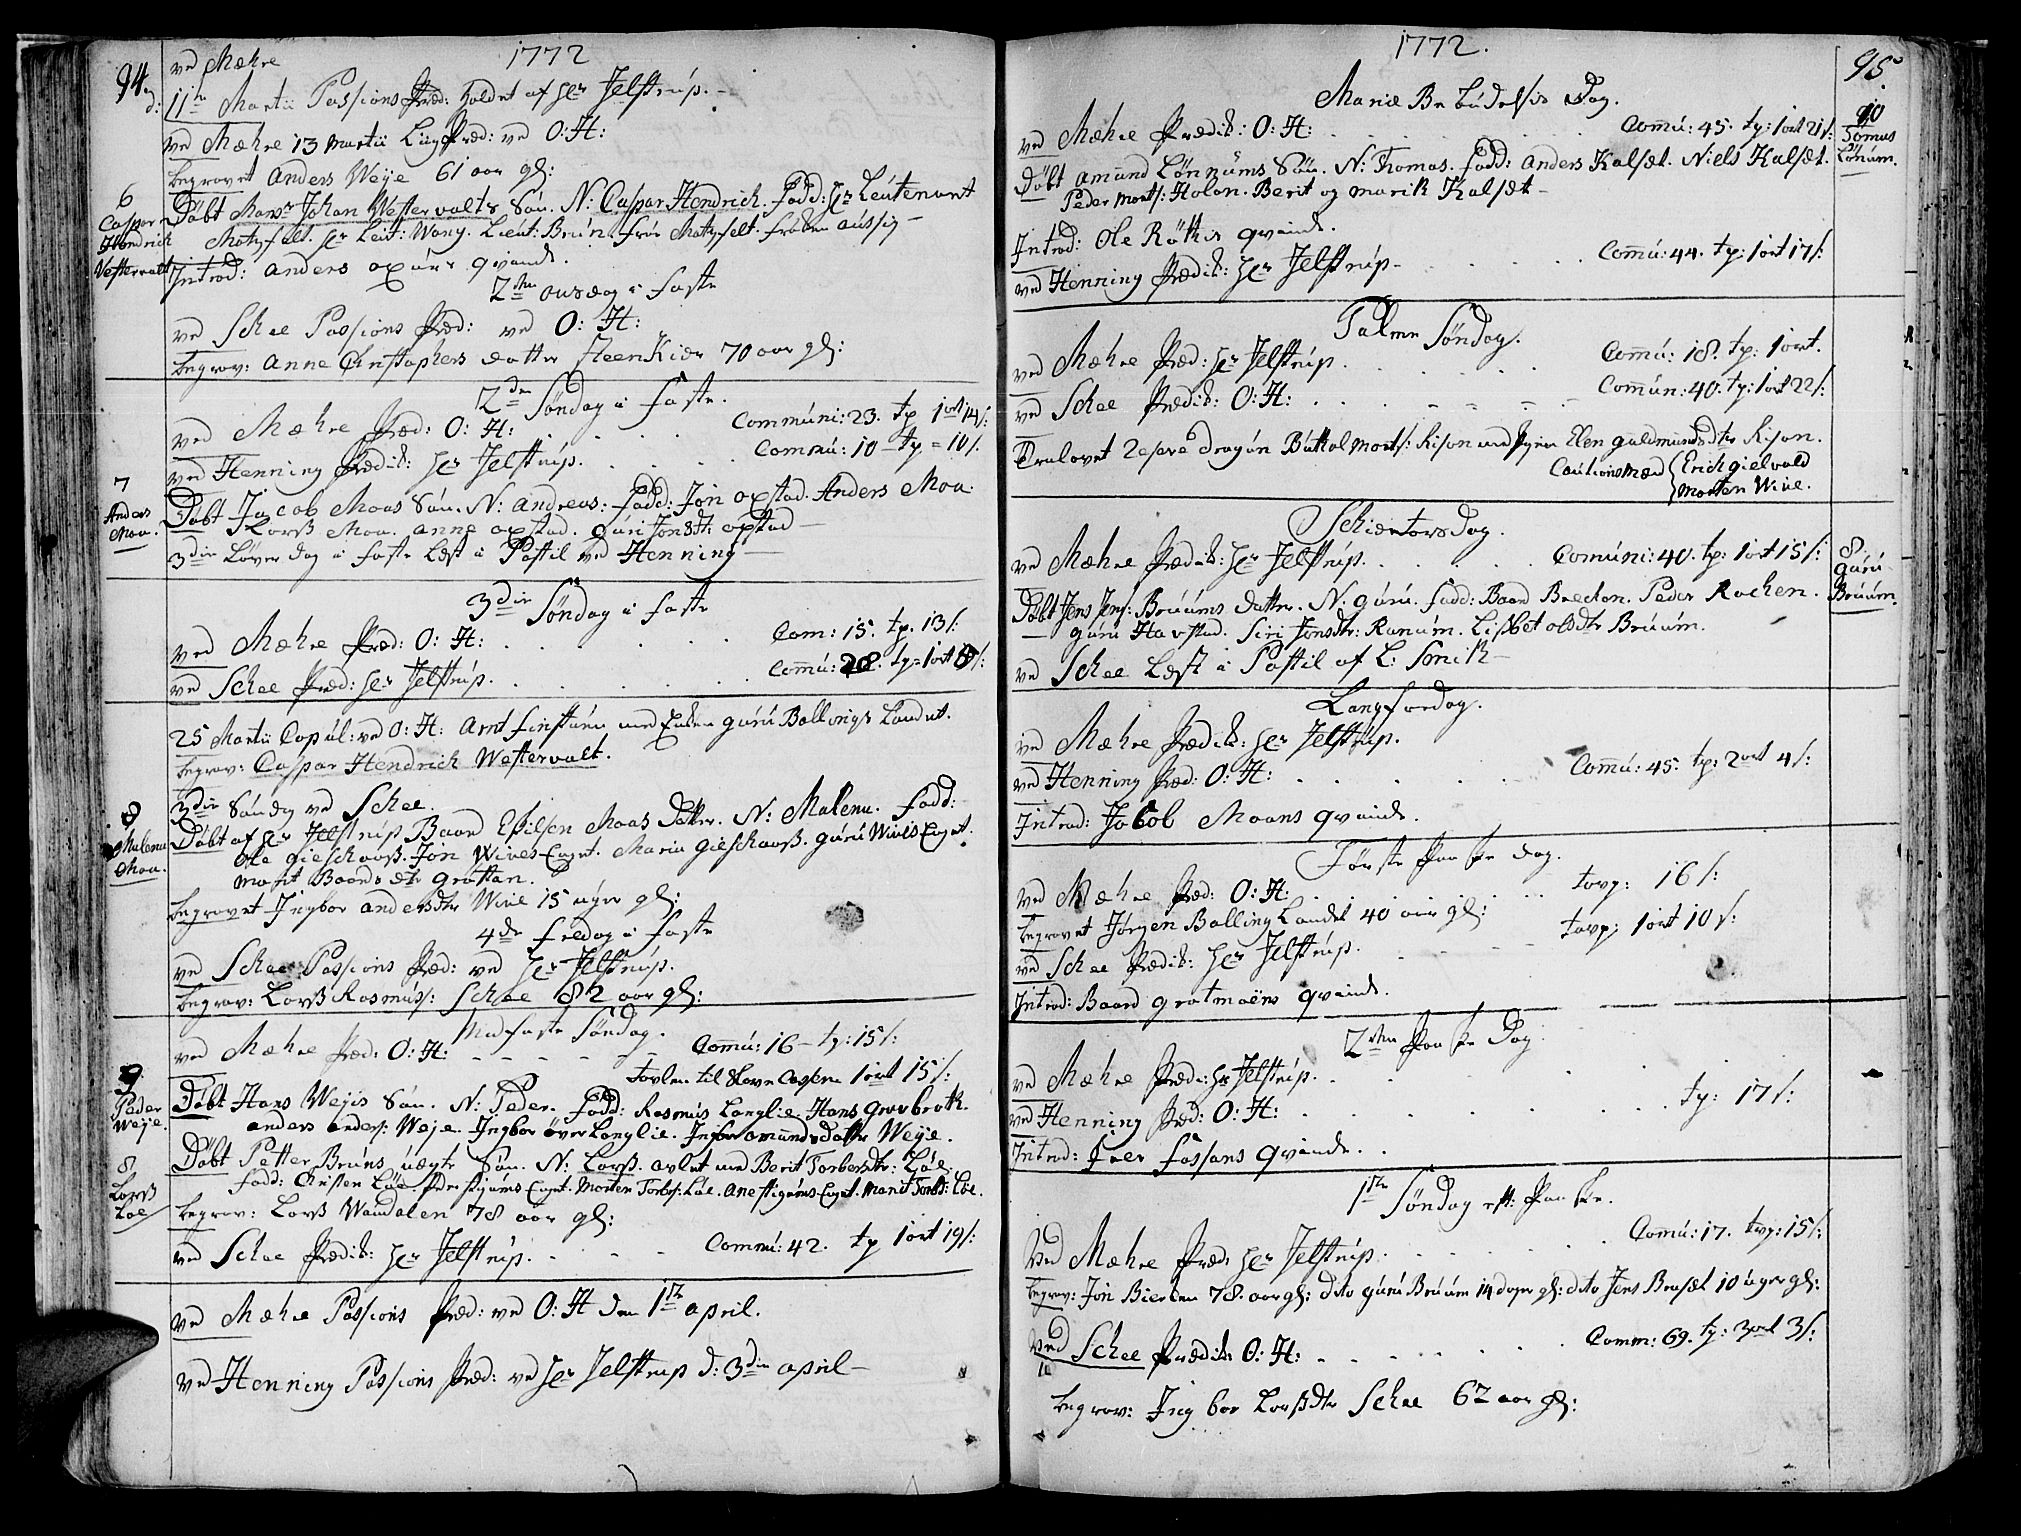 94.
1772
ved Mæhre
d: 11te Martii Passions Præd: holdet af Hr Jelstrup.
ved Mæhre 13 Martii Præd: ved O: H:
begravet Anders Weye 61 aar gl:
6
Caspar
Hendrich
Vestervalt
Døbt Mons. Johan Westervalts Søn. N: Caspar Hendrich. Fadd: Hr Leutenant
Motzfelt. Hr Leut: Wang. Lieut: Brun. Frue Motzfelt. Frøken
Introd: Anders qvinde.
2den onsdag i Faste
ved Schee Passions Præd: ved O: H:
begrav: Anne Christophers datter SteenKier 70 aar gl:
2de Søndag i Faste.
ved Mæhre Præd: O: H: Communi: 23. tp 1 ort 14 s:
ved Henning Prædik: Hr Jelstrup. Commu: 10 - tp = 10 s.
7
Anders
Moa.
Døbt Jacob Moas Søn. N: Andreas. Fadd: Jon Opstad. Anders Moa.
Lorss Moa. Anne Opstad. Guri Jonsdtr Opstad
3die Løverdag i Faste Læst i Postil ved Henning
3die Søndag i Faste
ved Mæhre Præd: O: H: Com: 15. tp. 13 s:
ved Schee Præd: Hr Jelstrup. Commu: 28. tp = 1 ort 8 s:
25 Martii Copul: ved O: H: Arnt med Enken Guru Ballings Landet.
begrav: Caspar Hendrich Westervalt.
3die Søndag ved Schee.
8
Malena
Moa.
Døbt af Hr Jelstrup Baard Moas Datter. N: Malena. Fadd:
Ole Gieskaass. Jon Wives Eyet. Maria Gieskaass. Guru Wives Eyet.
Marit Baards dtr Grøttan.
begravet Ingbor Andersdtr Wive 15 uger gl:
4de Fredag i Faste
ved Schee Passions Præd: ved Hr Jelstrup.
begrav: Lorss Rasmuss: Schee 82 aar gl:
Midfaste Søndag.
ved Mæhre Præd: O: H: Commu: 16 - tp: 15 s:
Tavlen til 1 ort 15 s:
9.
Peder
Weye.
Døbt Hans Weyes Søn. N: Peder. Fadd: Rasmus Langlie. Hans Graabrek.
Anders Anders: Weye. Ingbor Øver Langlie. Ingbor Amundsdatter Weye.
8
Lorss
Loe
Døbt Petter Bruns uægte Søn. N: Lorss. avlet med Berit Torbersdtr: Løe.
Fadd: Christen Løe. Eyet. Morten Torbs: Løe. Ane Stigums Eyet. Marit Torbs: Løe.
begrav: Lorss Wandalen 78 aar gl:
ved Schee Prædik: Hr Jelstrup. Commu: 42. tp 1 ort 19 s:
ved Mæhre Passions Præd: ved O: H den 1ste April.
ved Henning Passions Præd: ved Hr Jelstrup d: 3die April
1772.
95.
Mariæ Bebudelsis Dag.
ved Mæhre Prædik: O: H: Commu: 45. tp: 1 ort 21 s:
10
Tomas
Lønum.
Døbt Amund Lønnums Søn. N: Thomas. Fadd: Anders Kalsæt. Niels Kalsæt.
Peder Morts: Holan. Berit og Marik Kalsæt
Introd: Ole Røthis qvinde.
ved Henning Prædik: Hr Jelstrup. Commu: 44. tp: 1 ort 17 s:
Palme Søndag.
ved Mæhre Præd: Hr Jelstrup. Commu: 18. tp: 1 ort.
ved Schee Prædik: O: H: Commun: 40. tp: 1 ort 22 s:
Trolovet Reserve dragun Buttol Morts: Rison med Pigen Elen Guldmunds dtr Rison.
Cautionsmænd Erich Gielvald
Morten Wive.
Schiertorsdag.
ved Mæhre Prædik: Hr Jelstrup. Comuni: 40. tp: 1 ort 15 s:
8.
Guru
Bruum.
Døbt Jens Jens: Bruums datter. N. Guru. Fadd: Baard Brecken. Peder Rochen.
Guru Havstad. Siri Jonsdtr: Ranum. Lisbet Olsdtr Bruum.
ved Schee Læst i Postil af L: Smith
Langfredag.
ved Mæhre Prædik: Hr Jelstrup.
ved Henning Præd: O: H: Commu: 45. tp: 2 ort 4 s:
Introd: Jacob Moans qvinde.
Første Paaske dag.
ved Mæhre Præd: O: H: tavp: 16 s:
begravet Jørgen Balling Landet 40 aar gl:
ved Schee Prædik: Hr Jelstrup. tavp: 1 ort 10 s:
Introd: Baard Grøtmoens qvinde.
2den Paaske Dag
ved Mæhre Præd: Hr Jelstrup.
ved Henning Præd: O: H: tp: 17 s:
Introd: Iver Fossans qvinde.
1ste Søndag eft: Paaske.
ved Mæhre Præd: Hr Jelstrup. Commu: 17. tavp: 15 s:
begrav: Jon Bierken 78. aar gl: dito Guru Bruum 14 dager gl: dito Jens Brusæt 10 uger gl:
ved Schee Prædik: O: H: Comm: 69. tp: 3 ort 3 s:
begrav: Ingbor Lorssdtr Schee 62 aar gl: